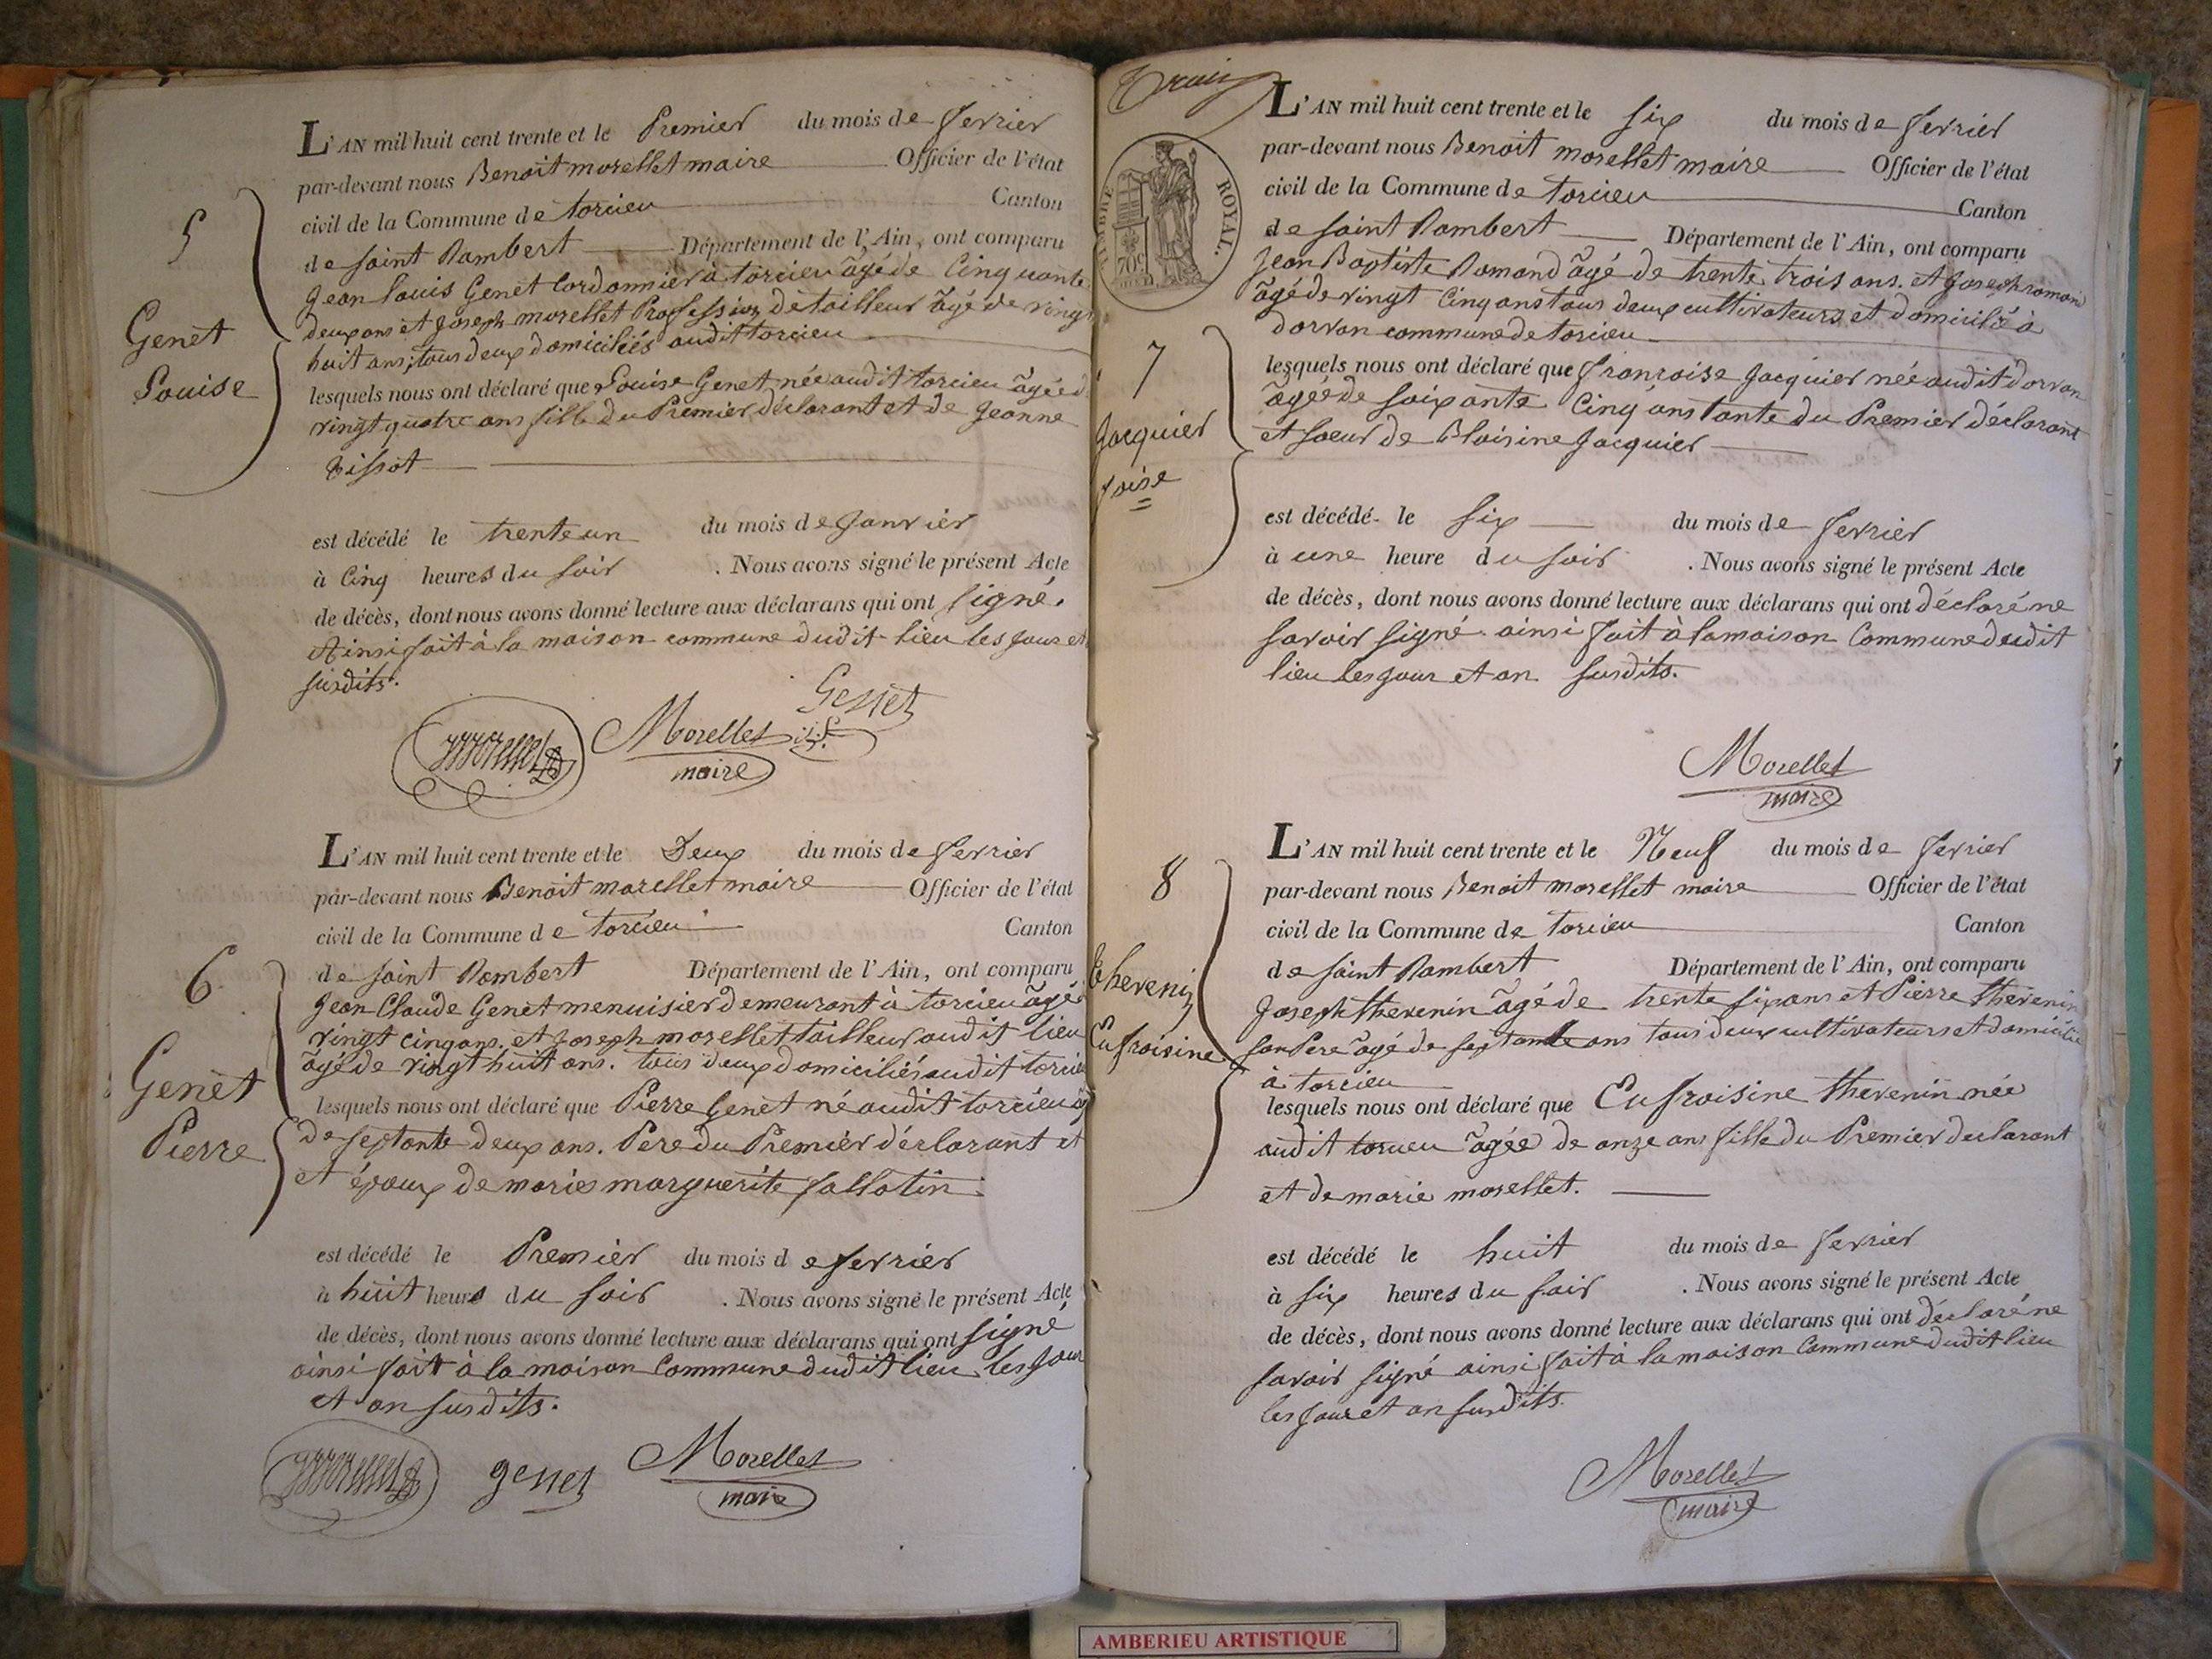 5
Genet
Louise
L'AN mil huit cent trente et le Premier du mois de fevrier
par-devant nous Benoit morellet maire Officier de l'état
civil de la Commune de torcieu Canton
de saint Rambert Département de l'Ain, ont comparu
Jean louis Genet Cordonnier à torcieu âgé de Cinquante
deux ans et Joseph morellet Profession de tailleur âgé de vingt
huit ans, tous deux domiciliés audit torcieu
lesquels nous ont déclaré que Louise Genet, née audit torcieu âgée d
vingt quatre ans fille du Premier déclarant et de Jeanne
tissot
est décédé le trente un du mois de Janvier
à Cinq heures du soir . Nous avons signé le présent Acte
de décès, dont nous avons donné lecture aux déclarans qui ont signé.
Ainsi fait à la maison commune dudit lieu les jour et
susdits.
Genet
Morellet
maire
6
Genet
Pierre
L'AN mil huit cent trente et le Deux du mois de fevrier
par-devant nous Benoit morellet maire Officier de l'état
civil de la Commune de torcieu Canton
de saint Rambert Département de l'Ain, ont comparu
Jean Claude Genet menuisier demeurant à torcieu âgé
vingt cinq ans. et Joseph morellet tailleur audit lieu
âgé de vingt huit ans. tous deux domiciliés audit torcieu
lesquels nous ont déclaré que Pierre Genet né audit torcieu âg
de septante deux ans. Pere du Premier déclarant et
et époux de marie marguerite fallatin
est décédé le Premier du mois de fevrier
à huit heures du soir . Nous avons signé le présent Acte
de décès, dont nous avons donné lecture aux déclarans qui ont signé
ainsi fait à la maison Commune dudit lieu les jour
et an susdits.
genet
Morellet
maire
TIMBRE ROYAL.
70c
7
Jacquier
foise
L'AN mil huit cent trente et le six du mois de fevrier
par-devant nous Benoit morellet maire Officier de l'état
civil de la Commune de torcieu Canton
de saint Rambert Département de l'Ain, ont comparu
Jean Baptiste Romand âgé de trente trois ans. et Joseph romand
âgé de vingt Cinq ans tous deux cultivateurs et domicilié à
dorvan commune de torcieu
lesquels nous ont déclaré que françoise Jacquier née audit dorvan
âgée de soixante Cinq ans tante du Premier déclarant
et soeur de Bloisine Jacquier
est décédé le six du mois de fevrier
à une heure du soir . Nous avons signé le présent Acte
de décès, dont nous avons donné lecture aux déclarans qui ont déclaré ne
savoir signé ainsi fait à la maison Commune dudit
lieu les jour et an susdits.
Morellet
maire
8
thevenin
Eufroisine
L'AN mil huit cent trente et le Neuf du mois de fevrier
par-devant nous Benoit morellet maire Officier de l'état
civil de la Commune de torcieu Canton
de saint Rambert Département de l'Ain, ont comparu
Joseph thevenin âgé de trente six ans et Pierre thevenin
son Pere âgé de septante ans tous deux cultivateurs et domicilié
à torcieu
lesquels nous ont déclaré que Eufroisine thevenin née
audit torcieu âgée de onze ans fille du Premier declarant
et de marie morellet.
est décédé le huit du mois de fevrier
à six heures du soir . Nous avons signé le présent Acte
de décès, dont nous avons donné lecture aux déclarans qui ont déclaré ne
savoir signé ainsi fait à la maison Commune dudit lieu
les jour et an susdits.
Morellet
maire
AMBERIEU ARTISTIQUE